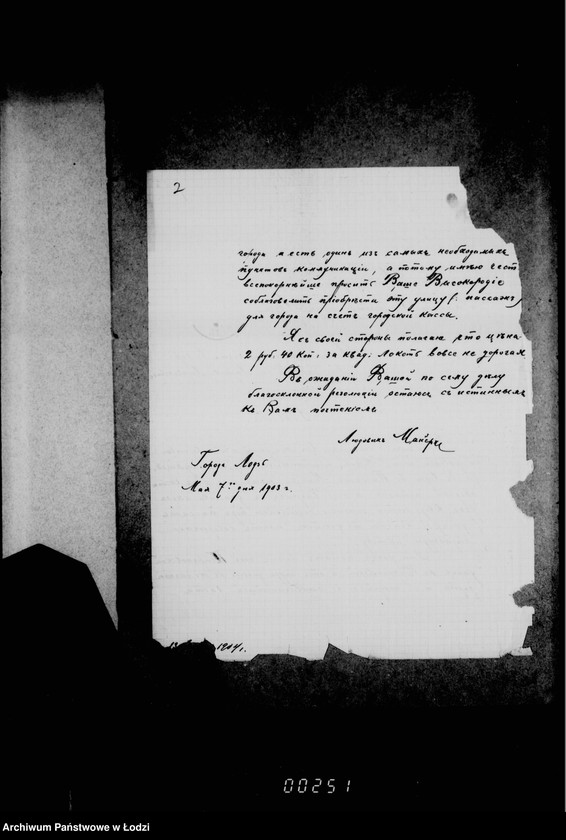 2
города и есть один из самых необходимых
пунктов коммуникации, а потому имею чест
всепокорнѣйше просить Ваше Высокородіе
соблаговолить пріобрѣсти эту улицу (: пассажъ
для города на счетъ городской кассы.
Я съ своей стороны полагаю что цѣна
2 руб. 40 коп: за квад: локоть вовсе не дорогая
Въ ожиданіи Вашей по сему дѣлу
благосклонной резолюціи остаюсь съ истиннымъ
къ Вамъ почтеніемъ
Людовикъ
Городъ Лодзь
Мая 7го дня 1903 г.
1904 г.
00251
Archiwum Państwowe w Łodzi